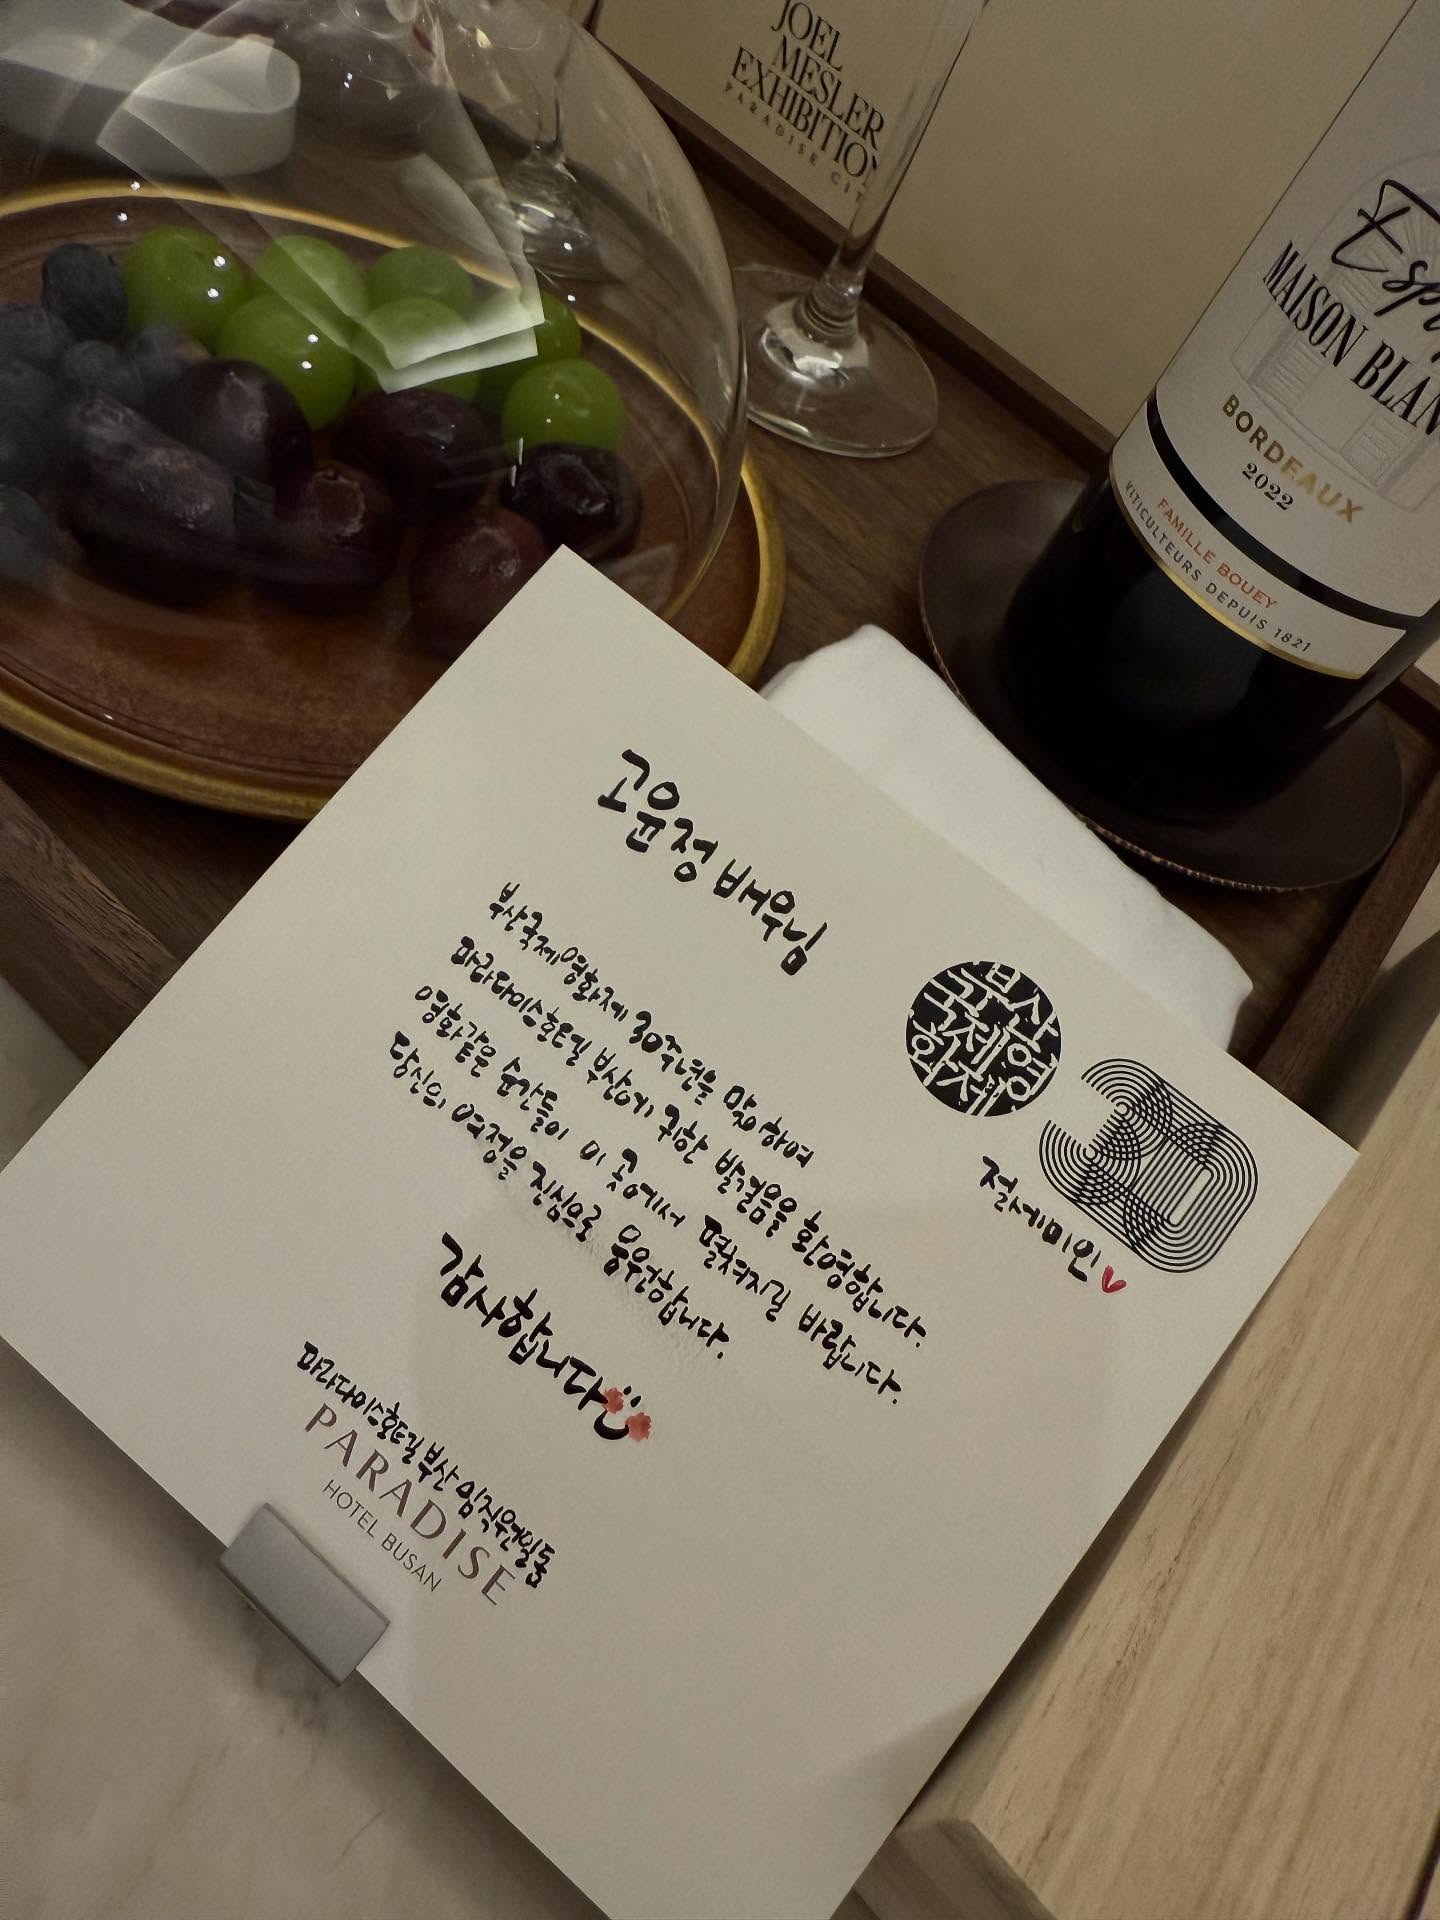 JOEL
MESLER
EXHIBITIO
PARADISE CIT
MAISON BLAN
BORDEAUX
2022
FAMILLE BOUEY
VITICULTEURS DEPUIS 1821
고윤정 배우님
부산국제영화제 30주년을 맞이하여
파라다이스호텔 부산에 귀한 발걸음을 환영합니다.
영화같은 순간들이 이 곳에서 펼쳐지길 바랍니다.
당신의 여정을 진심으로 응원합니다.
감사합니다
부산
국제영
화제
30
절세미인
파라다이스호텔 부산 임직원일동
PARADISE
HOTEL BUSAN